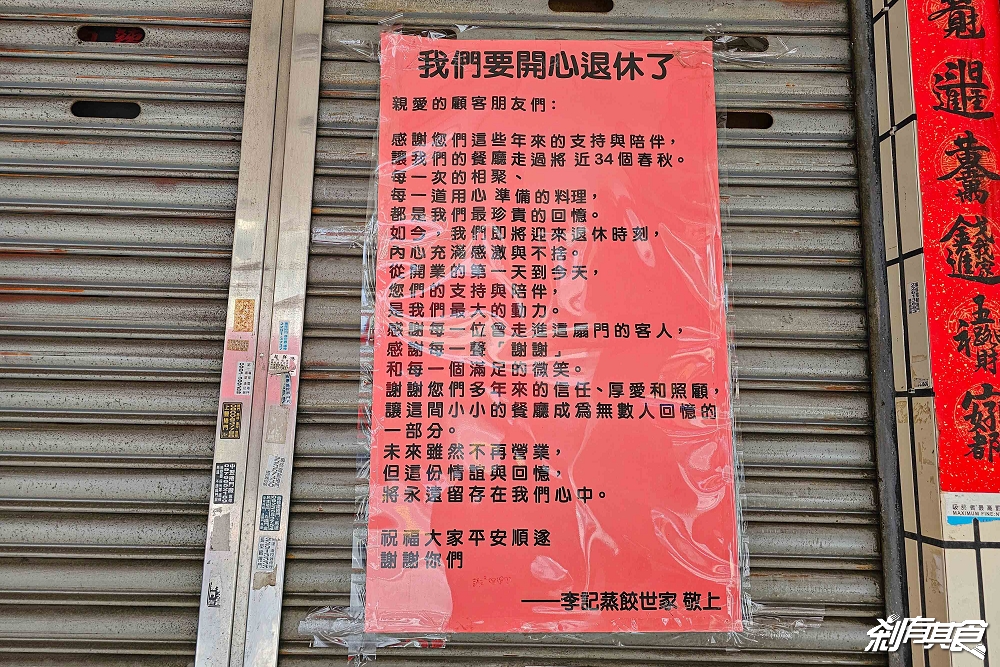 我們要開心退休了
親愛的顧客朋友們：
感謝您們這些年來的支持與陪伴，
讓我們的餐廳走過將近34個春秋。
每一次的相聚、
每一道用心準備的料理，
都是我們最珍貴的回憶。
如今，我們即將迎來退休時刻，
內心充滿感激與不捨。
從開業的第一天到今天，
您們的支持與陪伴，
是我們最大的動力。
感謝每一位曾走進這扇門的客人，
感謝每一聲「謝謝」
和每一個滿足的微笑。
謝謝您們多年來的信任、厚愛和照顧，
讓這間小小的餐廳成為無數人回憶的
一部分。
未來雖然不再營業，
但這份情誼與回憶，
將永遠留存在我們心中。
祝福大家平安順遂
謝謝你們
——李記蒸餃世家 敬上
MAXIMUM FINE:N
剎有其食